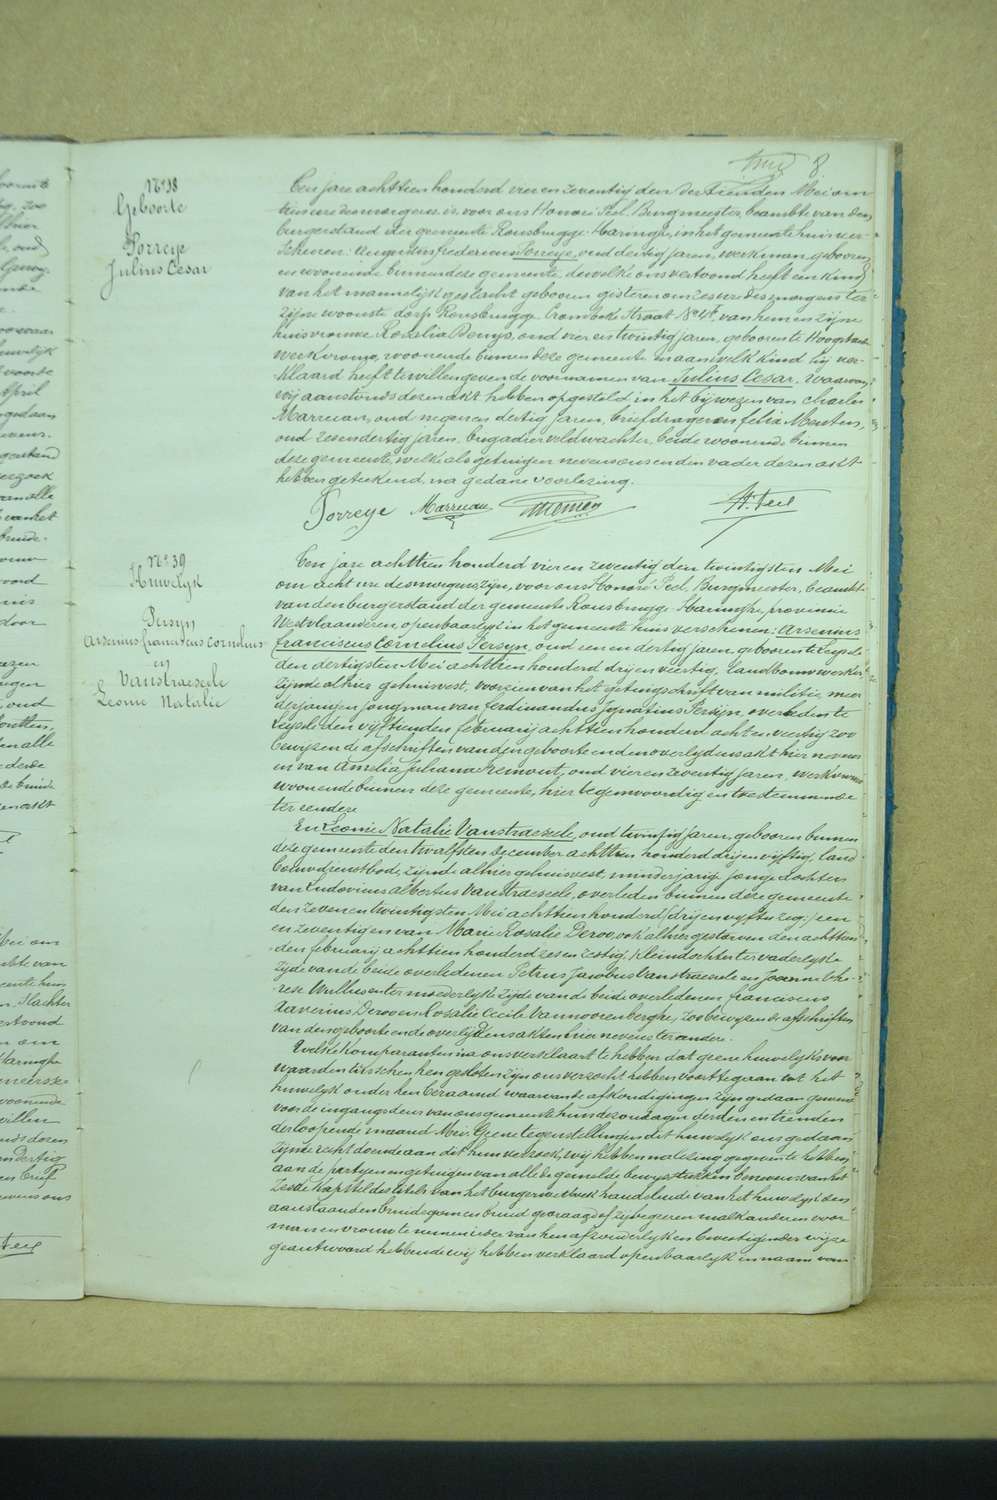 8
N° 38
Geboorte
Porreye
Julius Cesar
Een jare achttien honderd vier en zeventig den dertienden Mei om
tien ure des morgens is voor ons Honoré Peel, Burgmeester, beambte van den
burgerstand der gemeente Rousbrugge-Haringhe, in het gemeentehuis ver-
schenen: Augustus fredericus Porreye, oud dertig jaren, werkman, geboren
en woonende binnen deze gemeente, dewelke ons vertoond heeft een kind
van het mannelijk geslacht geboren gisteren om zes ure des morgens ter
zijne woonste dorp Rousbrugge Crombeke Straat N° 48, van hem en zijne
huisvrouwe Rosalia Denys, oud vier en twintig jaren, geboren te Hoogstade
werkvrouw, woonende binnen deze gemeente en aan welk kind hij ver-
klaard heeft te willen geven de voornamen van Julius Cesar. Waarvan
wij aanstonds dezen akt hebben opgesteld in het bijwezen van Charles
Marrecau, oud negen en dertig jaren, briefdrager en felix Mestens,
oud zesendertig jaren, brigadier veldwachter, beide woonende binnen
deze gemeente, welke als getuigen nevens ons en den vader dezen akt
hebben geteekend, na gedane voorlezing.
Porreye Marrecau H. Peel
N° 39
Huwelyk
Persyn
Arsenius franciscus Cornelius
en
Vanstraeseele
Leonie Natalie
Een jare achttien honderd vier en zeventig den twintigsten Mei
om acht ure des morgens, zijn, voor ons Honoré Peel, Burgmeester, beambte
van den burgerstand der gemeente Rousbrugge-Haringhe, provincie
Westvlaanderen, openbaarlijk in het gemeentehuis verschenen: Arsenius
franciscus Cornelius Persyn, oud een en dertig jaren, geboren te Leysele
den dertigsten Mei achttien honderd drij en veertig, landbouwwerker,
zijnde alhier gehuisvest, voorzien van het getuigschrift van militie, meer
derjarigen jongman van ferdinandus Ignatius Persyn, overleden te
Leysele den vijftienden februarij achttien honderd acht en veertig zoo
bewijzen de afschriften van den geboorte en den overlijdens akt hier nevens
en van Amelia Juliana Premout, oud vier en zeventig jaren, werkvrouw
woonende binnen deze gemeente, hier tegenwoordig en toestemmende
ter eendere
En Leonie Natalie Vanstraeseele, oud twintig jaren, geboren binnen
deze gemeente den twalfsten December achttien honderd drijenvijftig, land
bouwdienstbode, zijnde alhier gehuisvest, minderjarige jonge dochter
van Ludovicus Albertus Vanstraeseele, overleden binnen deze gemeente
den zevenentwintigsten Mei achttien honderd (drij en vijftig zeg:) een
en zeventig en van Marie Rosalie Deroo, ook alhier gestorven den achttien
den februarij achttien honderd zes en zestig, kleindochter ter vaderlyke
zijde van de beide overledenen Petrus Jacobus Vanstraeseele en Joanna The-
rese Wullus en ter moederlyke zijde van de beide overledenen franciscus
Xaverius Deroo en Rosalie Cecile Vannoorenberghe, zoo bewijzen de afschriften
van den geboorte en de overlijdensakten hier nevens ter andere.
Welke komparanten na ons verklaart te hebben dat geene huwelyksvoor
waarden tusschen hen gesloten zijn ons verzocht hebben voort te gaan tot het
huwelyk onder hen beraamd waarvan de afkondigingen zijn gedaan geweest
voor de ingangdeur van ons gemeentehuis de zondagen derden en tienden
der loopende maand Mei. Geene tegenstellingen dit huwelyk ons gedaan
zijnde recht doende aan dit hun verzoek, wij hebben na lezing gegeven te hebben
aan de partyen en getuigen van alle de gemelde bewysstukken benevens van het
zesde kapittel des titels van het burgerwetboek handelende van het huwelyk den
aanstaanden bruidegom en bruid gevraagd of zij begeeren malkanderen voor
man en vrouw te nemen ieder van hen afzonderlyk en bevestigender wijze
geantwoord hebbende wij hebben verklaard openbaarlyk in naam van